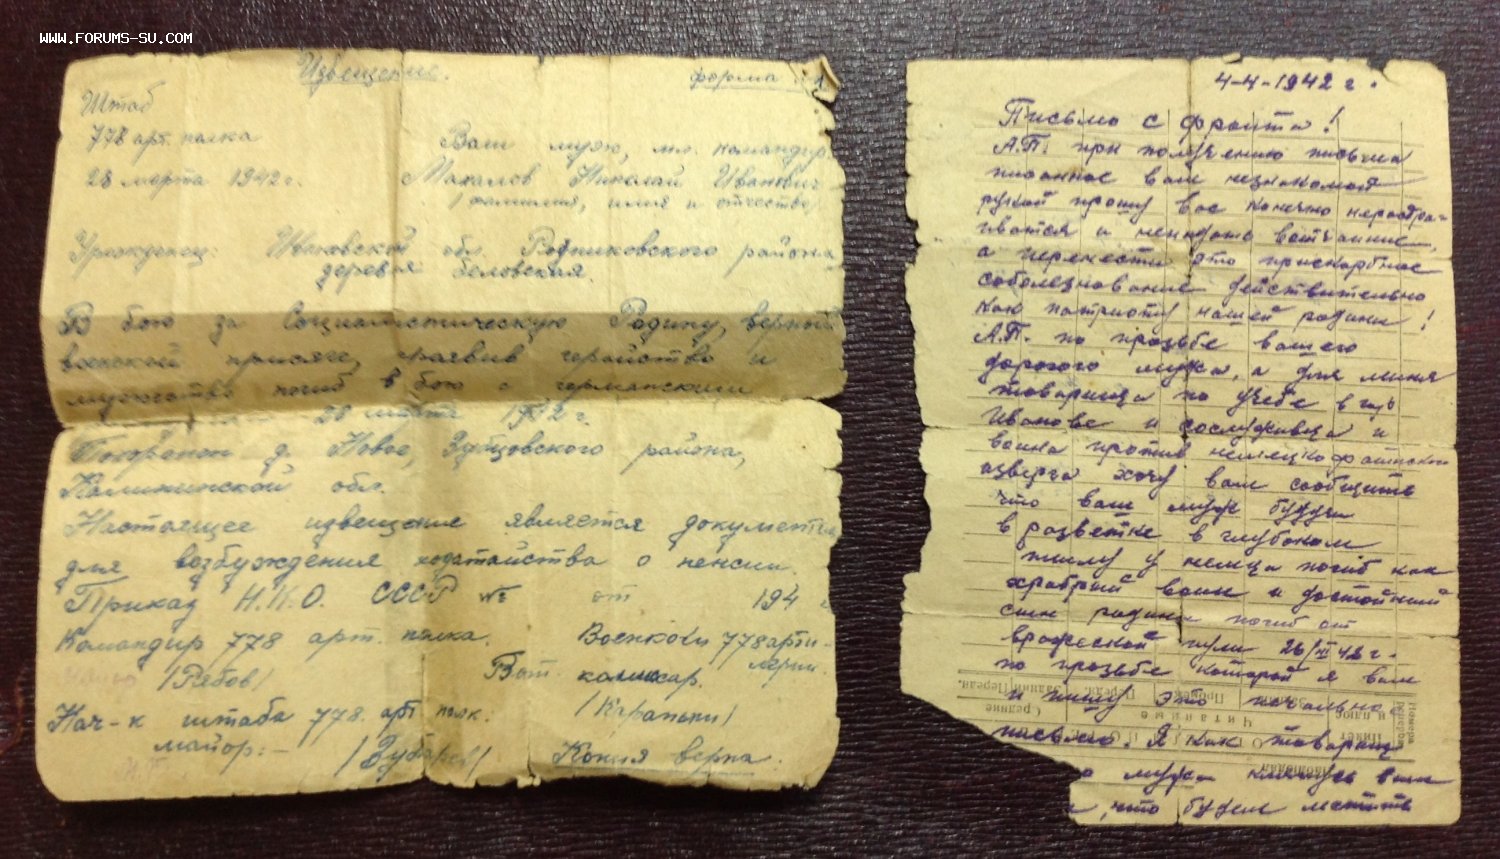 WWW.FORUMS-SU.COM
Извещение.
форма
Штаб
778 арт. полка
28 марта 1942 г.
Ваш муж, мл. командир.
Махалов Николай Иванович
/фамилия, имя и отчество/
Уроженец Ивановской обл. Родниковского района
деревня Беловская
В бою за Социалистическую Родину, верный
воинской присяге, проявив геройство и
мужество погиб в бою с германским
28 марта 1942 г.
Похоронен д. Новое, Зубцовского района,
Калининской обл.
Настоящее извещение является документом
для возбуждения ходатайства о пенсии.
Приказ Н.К.О. СССР № от 194 г.
Командир 778 арт. полка.
/Рябов/
Военком 778 арти-
лерии.
Бат. комиссар.
Нач-к штаба 778. арт полк.
майор:-
/Зубарев/
Копия верна.
4-4-1942 г.
Письмо с фронта!
А.П. при получению письма
писанное вам незнакомой
рукой прошу вас конечно нерастра-
иватся и
а перенести это прискорбное
соболезнование действительно
как патриоту нашей родины!
А.П. по прозьбе вашего
дорогого мужа, а для меня
товарища по учебе в гор
Иванове и сослуживца и
воина против немецко фашиского
изверга хочу вам сообщить
что ваш муж будучи
в разветке в глубоком
тылу у немца погиб как
храбрий воин и достойний
син родини погиб от
вражеской пули 26/III 42 г.
по прозьбе которой я вам
и пишу это печально
письмо. Я как товарищ
мужа клянусь вам
, что будем мстить